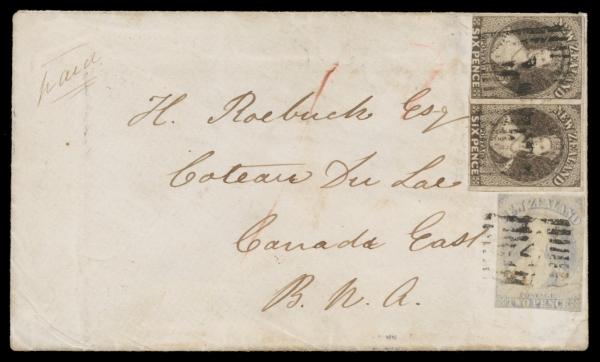 paid
H. Roebuck Esq
Coteau Du Lac
Canada East
B. N. A.
NEW ZEALAND
POSTAGE
SIX PENCE
NEW ZEALAND
POSTAGE
SIX PENCE
NEW ZEALAND
POSTAGE
TWO PENCE